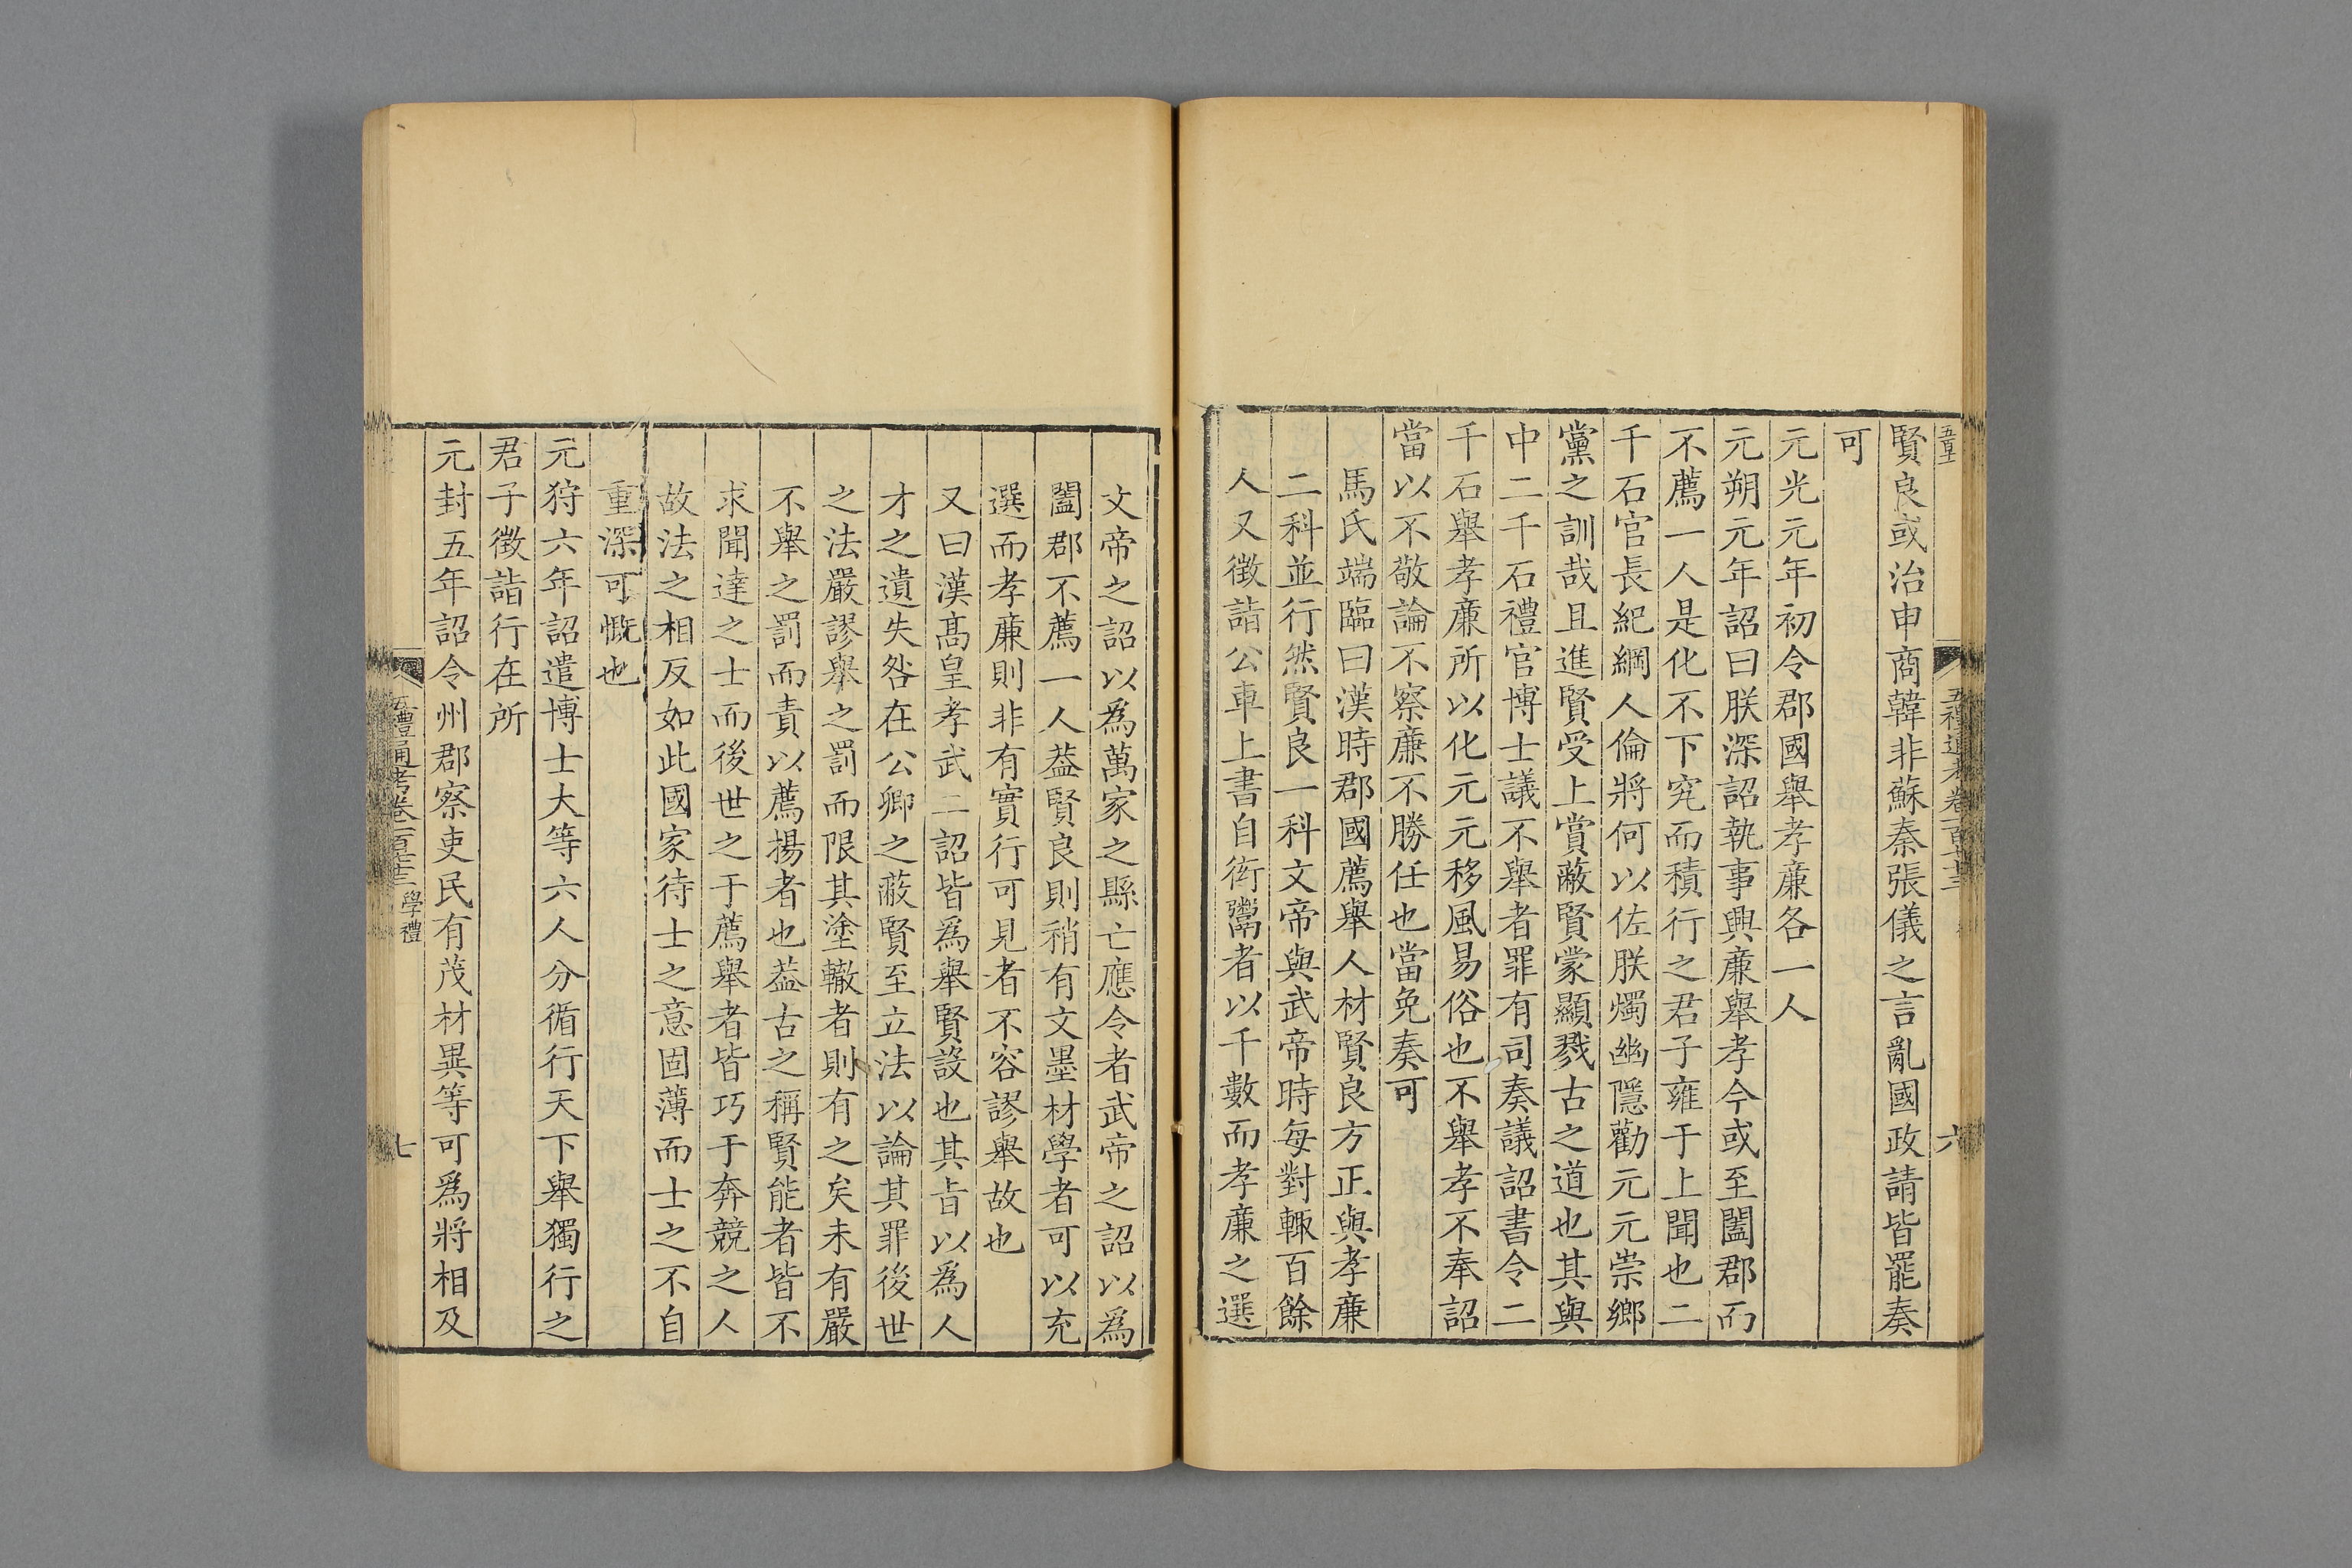 賢良或治申商韓非蘇秦張儀之言亂國政請皆罷奏
可
元光元年初令郡國舉孝廉各一人
元朔元年詔曰朕深詔執事興廉舉孝今或至闔郡而
不薦一人是化不下究而積行之君子雍于上聞也二
千石官長紀綱人倫將何以佐朕燭幽隱勸元元崇鄉
黨之訓哉且進賢受上賞蔽賢蒙顯戮古之道也其與
中二千石禮官博士議不舉者罪有司奏議詔書令二
千石舉孝廉所以化元元移風易俗也不舉孝不奉詔
當以不敬論不察廉不勝任也當免奏可
馬氏端臨曰漢時郡國薦舉人材賢良方正與孝廉
二科並行然賢良一科文帝與武帝時每對輒百餘
人又徵詣公車上書自衒鬻者以千數而孝廉之選
文帝之詔以為萬家之縣亡應令者武帝之詔以為
闔郡不薦一人葢賢良則稍有文墨材學者可以充
選而孝廉則非有實行可見者不容謬舉故也
又曰漢髙皇孝武二詔皆為舉賢設也其㫖以為人
才之遺失咎在公卿之蔽賢至立法以論其罪後世
之法嚴謬舉之罰而限其塗轍者則有之矣未有嚴
不舉之罰而責以薦揚者也葢古之稱賢能者皆不
求聞達之士而後世之于薦舉者皆巧于奔競之人
故法之相反如此國家待士之意固薄而士之不自
重深可慨也
元狩六年詔遣博士大等六人分循行天下舉獨行之
君子徵詣行在所
元封五年詔令州郡察吏民有茂材異等可爲將相及
五禮通考卷一百七十三 學禮
七
五禮通考卷一百七十三
六